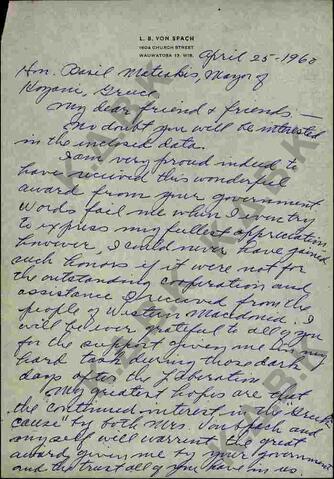 L. B. VON SPACH
1604 CHURCH STREET
WAUWATOSA 13, WIS.
April 25-1960
Hon. Basil Mateukis, Mayor of
Kozani, Greece
My dear friend & friends —
No doubt you will be interested
in the inclosed data.
I am very proud indeed to
have received this wonderful
award from your government
Words fail me when I even try
to express my fullest appreciation
however, I could never have gained
such honors if it were not for
the outstanding cooperation and
assistance I received from the
people of Western Macedonia. I
will be ever grateful to all of you
for the support given me in my
hard task during those dark
days after the Liberation
My greatest hopes are that
the continued interest in the "Greek
cause" by both Mrs. Von Spach and
myself will warrent the great
award given me by your government
and the trust all of you have in us.